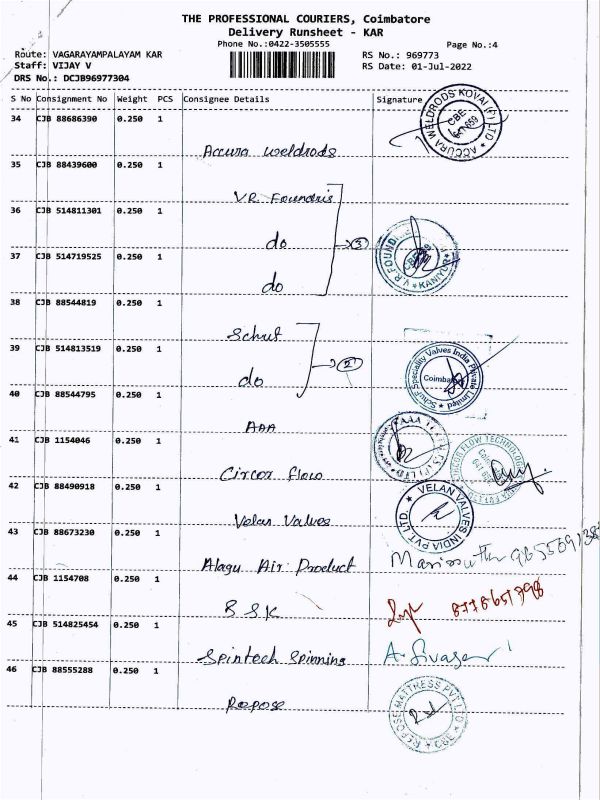 THE PROFESSIONAL COURIERS, Coimbatore
Delivery Runsheet - KAR
Phone No.:0422-3505555
Page No.:4
Route: VAGARAYAMPALAYAM KAR
RS No.: 969773
Staff: VIJAY V
RS Date: 01-Jul-2022
DRS No.: DCJB96977304
S No Consignment No Weight PCS Consignee Details Signature
34 CJB 88686390 0.250 1
Accura weldrods
ACCURA WELDRODS KOVAI (P) LTD
CBE
35 CJB 88439600 0.250 1
VR Foundris
36 CJB 514811301 0.250 1
do
3
V.R.FOUND
KANIYUR
37 CJB 514719525 0.250 1
do
38 CJB 88544819 0.250 1
Schuf
39 CJB 514813519 0.250 1
do
2
Schuf Speciality Valves India Private Limited
40 CJB 88544795 0.250 1
AAA
41 CJB 1154046 0.250 1
Circor flow
42 CJB 88490918 0.250 1
Velan Valves
VELAN VALVES INDIA PVT. LTD.
43 CJB 88673230 0.250 1
Alagu Air Product
44 CJB 1154708 0.250 1
BSK
45 CJB 514825454 0.250 1
Spintech Spinning
46 CJB 88555288 0.250 1
Repose
REPOSE MATTRESS PVT LTD